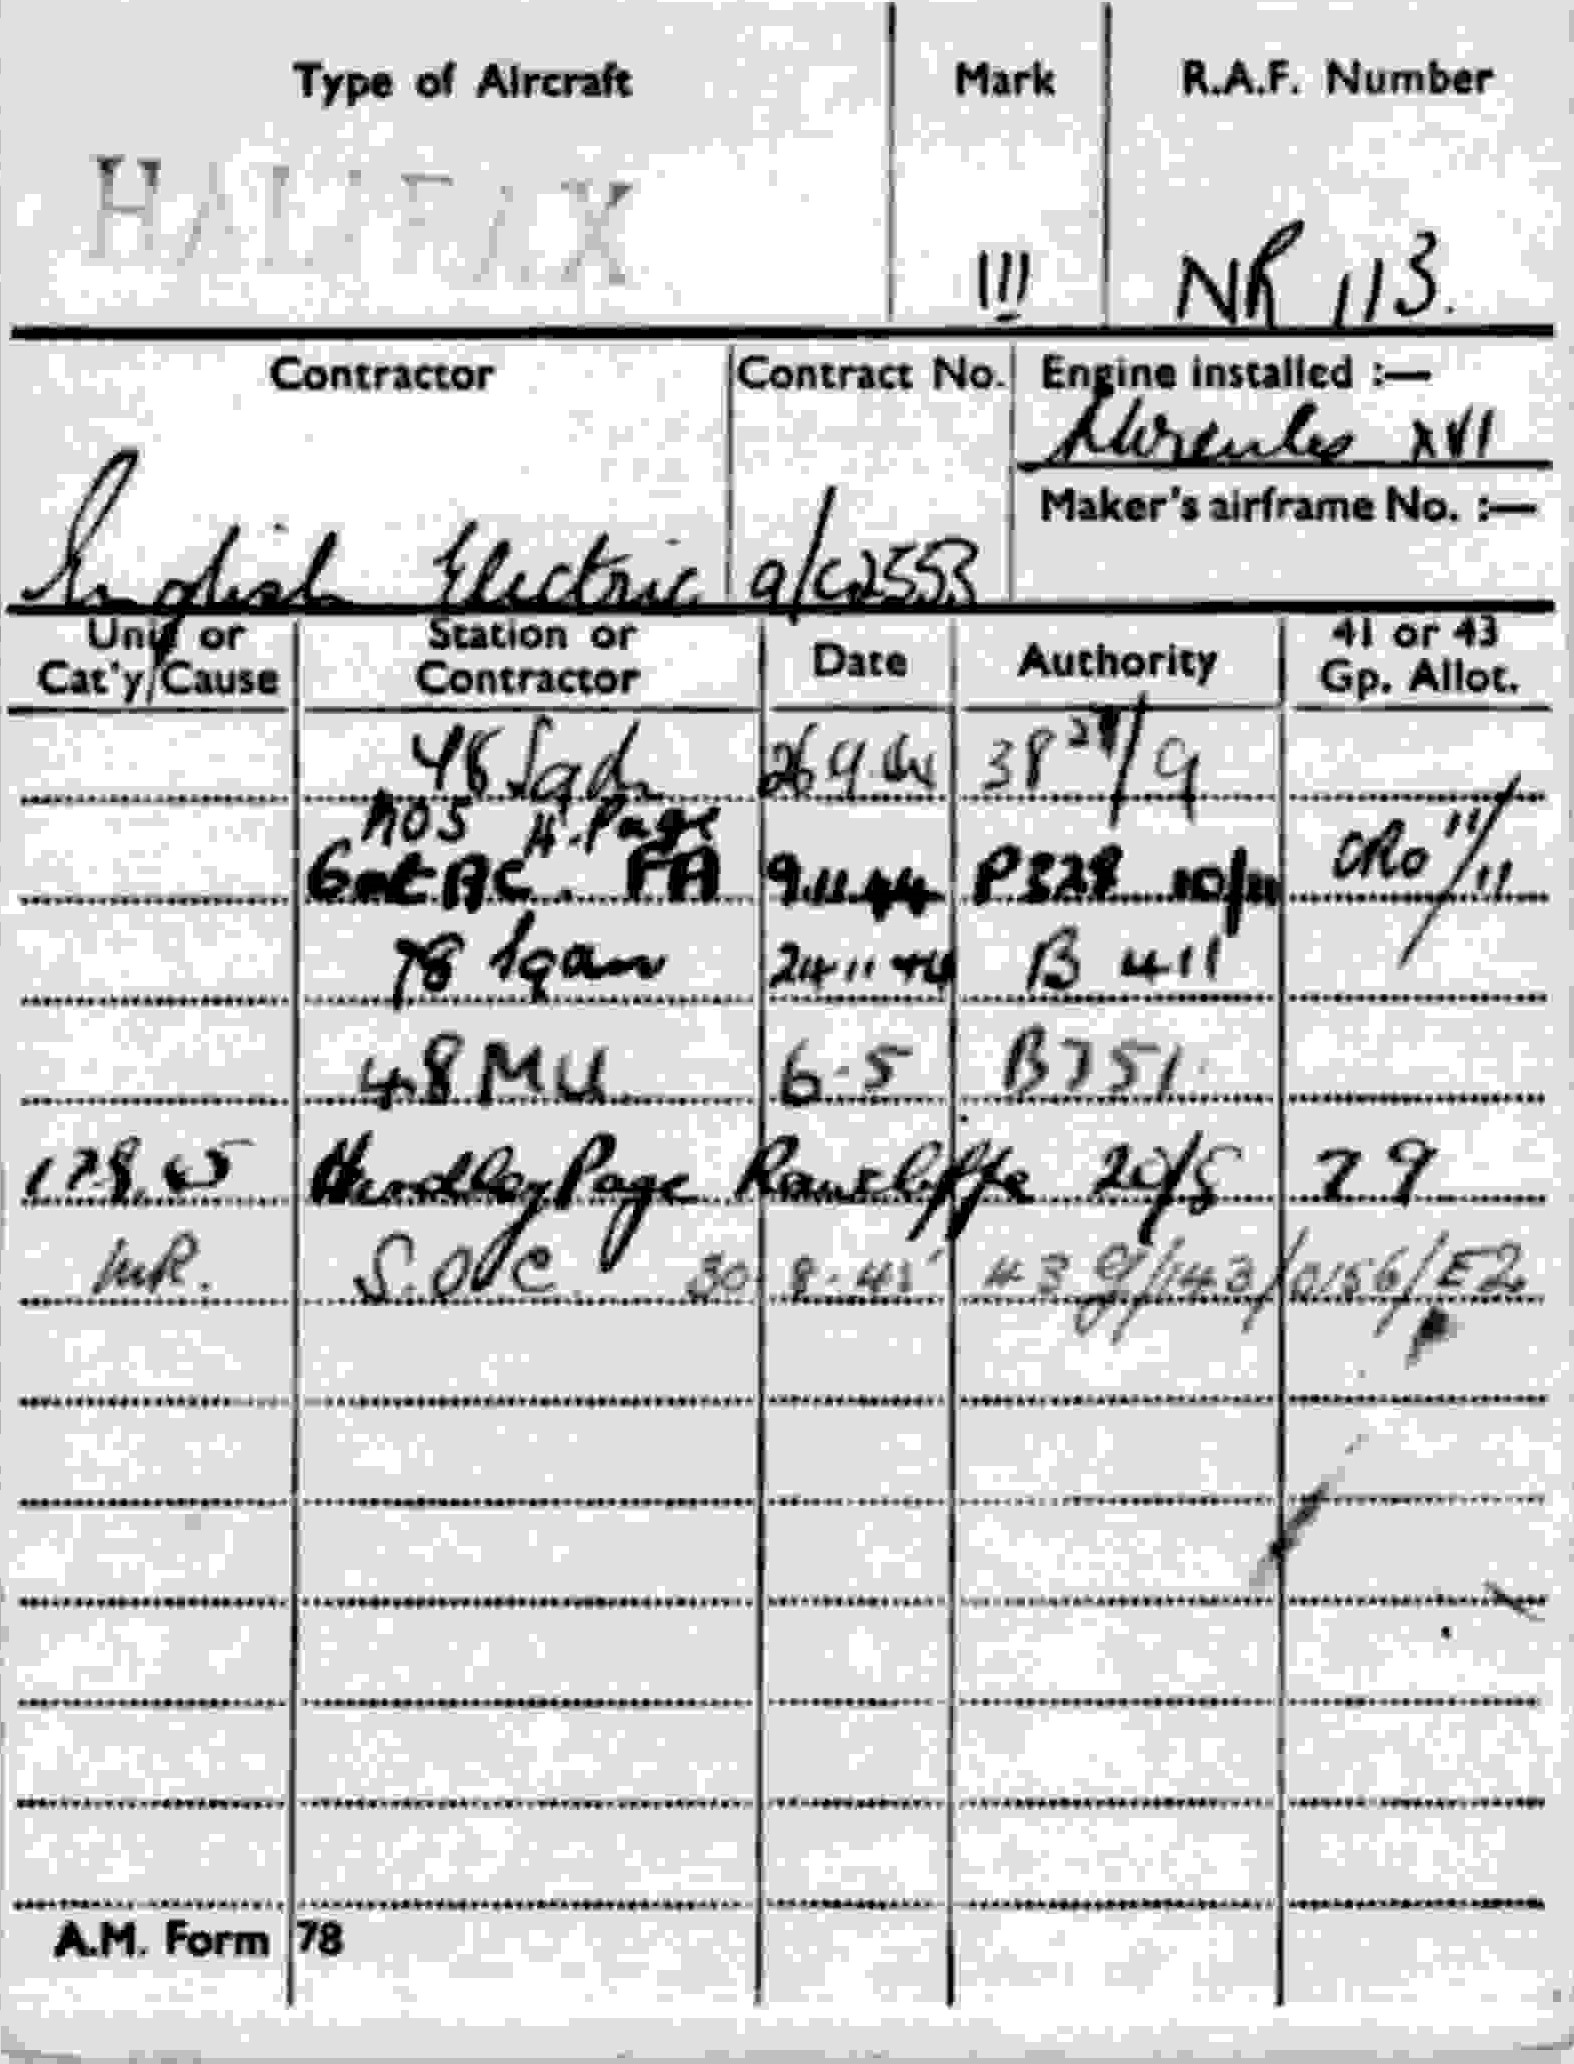 Type of Aircraft Mark R.A.F. Number
HALIFAX III NR 113.
Contractor Contract No. Engine installed :—
Hercules XVI
Maker's airframe No. :—
English Electric a/c2553
Unit or Cat'y/Cause Station or Contractor Date Authority 41 or 43 Gp. Allot.
Sqdn 26 9 44 38 /9
H. Page
AC. FA 9.11.44 P328 10/11 11/11
78 Sqdn 24 11 44 B 411
48 MU 6-5 B751
Handley Page Rawcliffe 20/8 79
S.O.C. 30 8.45 43 g/143/ /E2
A.M. Form 78